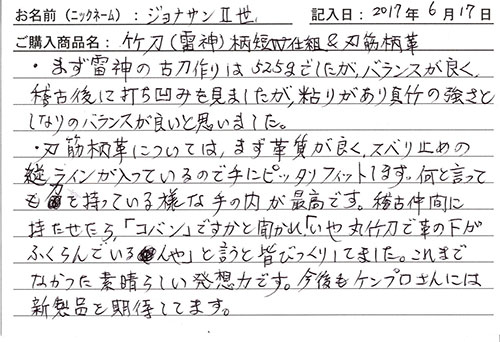 お名前（ニックネーム）：ジョナサンⅡ世　記入日：2017年6月17日
ご購入商品名：竹刀（雷神）柄短W仕組＆刃筋柄革
・まず雷神の古刀作りは525gでしたが、バランスが良く、
稽古後に打ち凹みを見ましたが、粘りがあり真竹の強さと
しなりのバランスが良いと思いました。
・刃筋柄革については、まず革質が良く、スベリ止めの
縫ラインが入っているので手にピッタリフィットします。何と言って
も刀を持っている様な手の内が最高です。稽古仲間に
持たせたら、「コバン」ですかと聞かれ「いや丸竹刀で革の下が
ふくらんでいるんや」と言うと皆びっくりしてました。これまで
なかった素晴らしい発想力です。今後もケンプロさんには
新製品を期待してます。